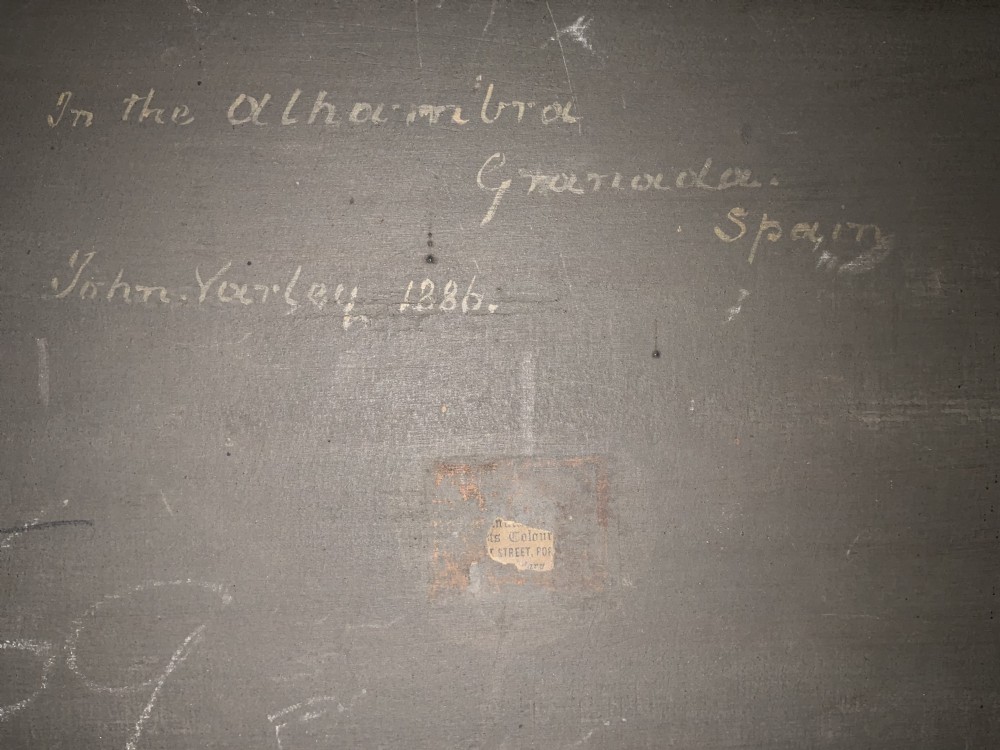 In the Alhambra
Granada.
Spain
John Varley 1886.
ts Colour
STREET, POR
59